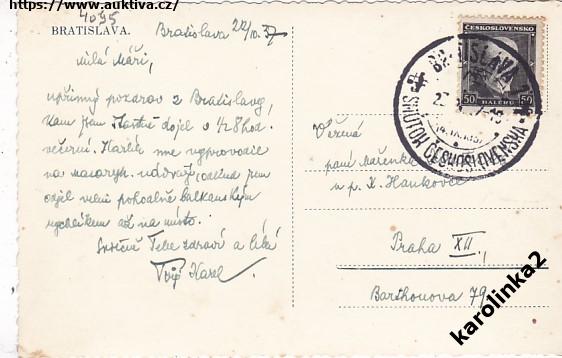 https://www.auktiva.cz/
4095
BRATISLAVA.
Bratislava 22/IX. 37
Milá Máři,
upřímný pozdrav z Bratislavy,
kam jsem šťastně dojel o ½8 hod.
večerní. Karlík mne vyprovodil
na masaryk. nádraží, odkud jsem
odjel velmi pohodlně balkánským
rychlíkem až na místo.
Srdečně Tebe zdraví a líbá
Tvůj Karel
ČESKOSLOVENSKO
50 HALÉŘŮ 50
BRATISLAVA
SMÚTOK ČESKOSLOVENSKA
Vážená
paní Mařenka
u p. K. Hankovce
Praha XII.
Barthouova 79
karolinka2